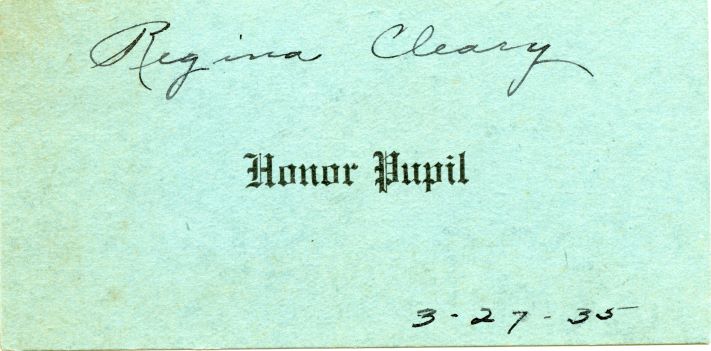 Regina Cleary
Honor Pupil
3-27-35